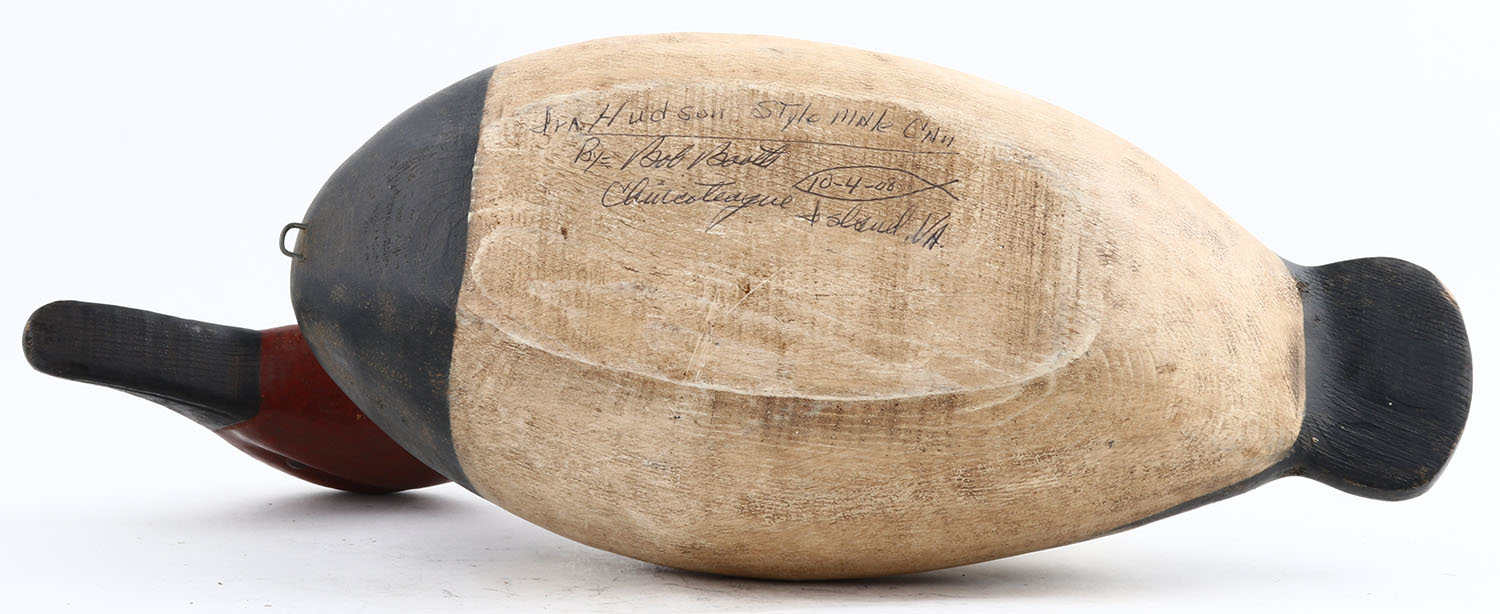 Ira Hudson Style Male Can
By: Bob Booth
10-4-08
Chincoteague Island, VA.